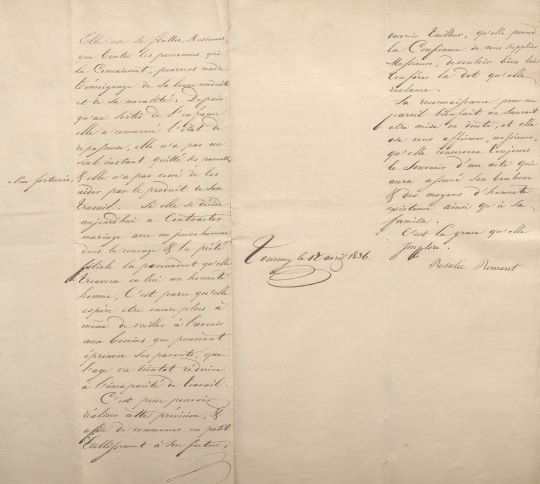 Elle ose se flatter, Messieurs,
que toutes les personnes qui
la Connaissent, pourront rendre
témoignage de sa bonne conduite
et de sa moralité. Depuis
qu'au sortir de l'enfance
elle a commencé l'état de
repasseuse, elle n'a pas un
seul instant quitté ses parents,
peu fortunés,
& elle n'a pas cessé de les
aider par le produit de son
travail. Si elle se décide
aujourd'hui a Contracter
mariage avec un jeune homme
dont le courage & la piété
filiale la persuadent qu'elle
trouvera en lui un honnête
homme, C'est parce qu'elle
espère etre encore plus à
même de veiller à l'avenir
aux besoins que pourront
éprouver ses parents, que
l'age va bientot réduire
à l'incapacité de travail.
C'est pour pouvoir
réaliser cette prévision, &
afin de commencer un petit
Etablissement à son futur,
Tournay le 12 avril 1836.
ouvrier tailleur, qu'elle prend
la Confiance de vous supplier
Messieurs, de vouloir bien lui
Conférer la dot qu'elle
réclame.
Sa reconnaissance pour un
pareil bienfait ne saurait
etre mise en doute, et elle
ose vous affirmer, messieurs,
qu'elle conservera toujours
le Souvenir d'un acte qui
aura assuré son bonheur
& des moyens d'honnete
existence ainsi qu'à sa
famille.
C'est la grace qu'elle
implore.
Rosalie Romont